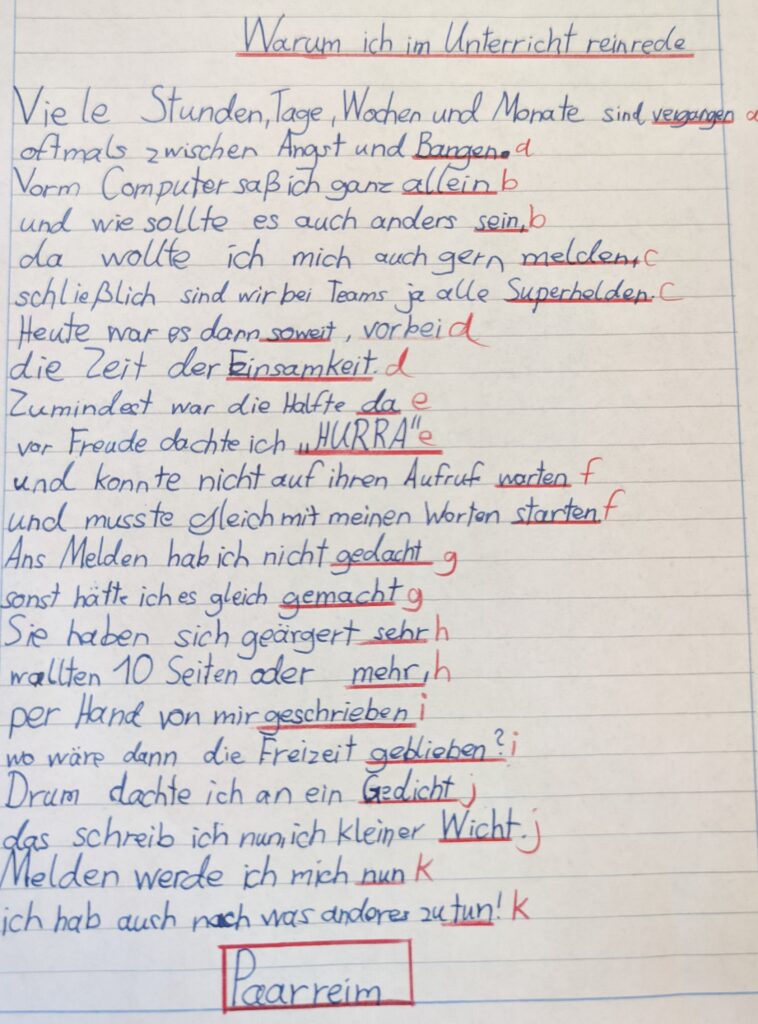 Warum ich im Unterricht reinrede
Viele Stunden, Tage, Wochen und Monate sind vergangen a
oftmals zwischen Angst und Bangen. a
Vorm Computer saß ich ganz allein b
und wie sollte es auch anders sein, b
da wollte ich mich auch gern melden, c
schließlich sind wir bei Teams ja alle Superhelden. c
Heute war es dann soweit, vorbei d
die Zeit der Einsamkeit. d
Zumindest war die Hälfte da e
vor Freude dachte ich „HURRA" e
und konnte nicht auf ihren Aufruf warten f
und musste gleich mit meinen Worten starten f
Ans Melden hab ich nicht gedacht g
sonst hätte ich es gleich gemacht g
Sie haben sich geärgert sehr h
wollten 10 Seiten oder mehr, h
per Hand von mir geschrieben i
wo wäre dann die Freizeit geblieben? i
Drum dachte ich an ein Gedicht j
das schreib ich nun, ich kleiner Wicht. j
Melden werde ich mich nun k
ich hab auch noch was anderes zu tun! k
Paarreim